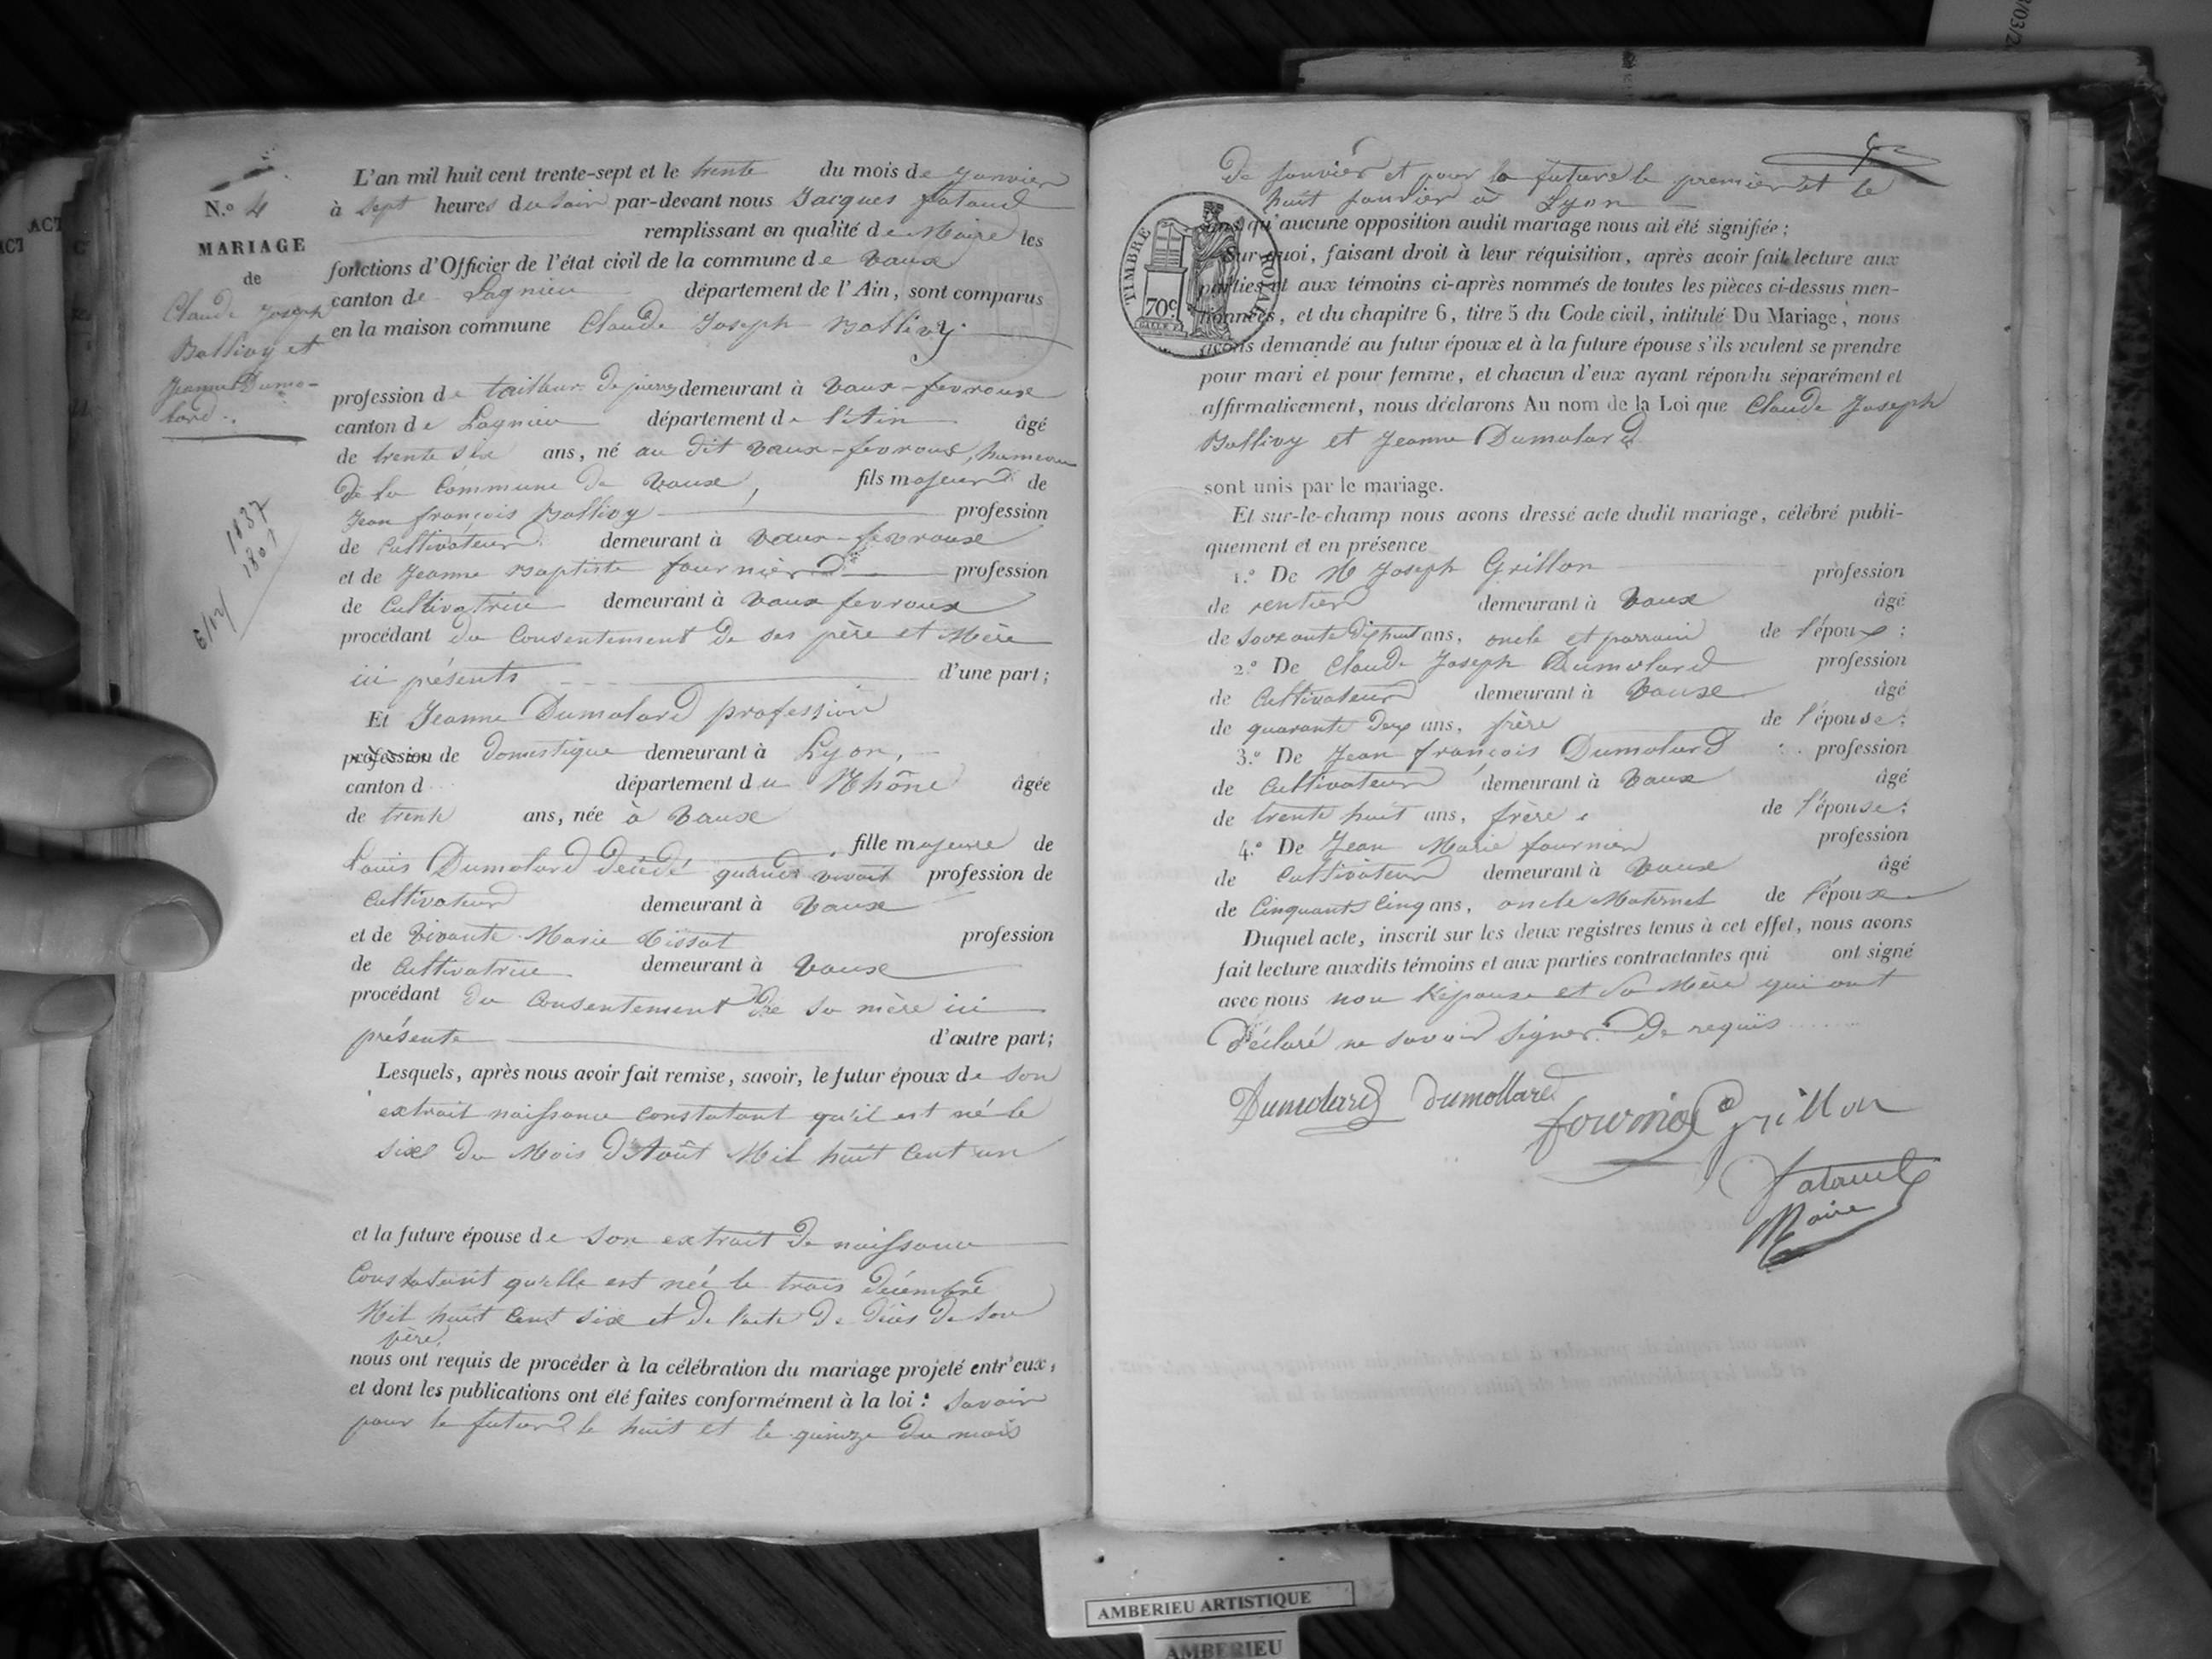 N.o 4
MARIAGE
de
Claude Joseph
Ballivy et
Jeanne Dumo-
lard.
1837
1801
L'an mil huit cent trente-sept et le trente du mois de Janvier
à sept heures du soir par-devant nous Jacques fataud
remplissant en qualité de Maire les
fonctions d'Officier de l'état civil de la commune de Vaux
canton de Lagnieu département de l'Ain, sont comparus
en la maison commune Claude Joseph Ballivy
profession de tailleur de pierres demeurant à Vaux-fevroux
canton de Lagnieu département de l'Ain âgé
de trente six ans, né au dit Vaux-fevroux, hameau
de la Commune de Vaux, fils majeur de
Jean françois Ballivy profession
de Cultivateur demeurant à Vaux-fevroux
et de Jeanne Baptiste fournier profession
de Cultivatrice demeurant à Vaux fevroux
procédant du Consentement de ses père et Mère
ici présents d'une part;
Et Jeanne Dumolard profession
profession de domestique demeurant à Lyon,
canton d département du Rhône âgée
de trente ans, née à Vaux
fille majeure de
Louis Dumolard décédé quand vivait profession de
Cultivateur demeurant à Vaux
et de Vivante Marie Tissot profession
de Cultivatrice demeurant à Vaux
procédant du Consentement de sa mère ici
présente d'autre part;
Lesquels, après nous avoir fait remise, savoir, le futur époux de son
extrait naissance constatant qu'il est né le
six du Mois d'Août Mil huit Cent un
et la future épouse de son extrait de naissance
Constatant qu'elle est née le trois décembre
Mil huit Cent six et de l'acte de décès de son
père
nous ont requis de procéder à la célébration du mariage projeté entr'eux,
et dont les publications ont été faites conformément à la loi: Savoir
pour le futur le huit et le quinze du mois
De Janvier et pour la future le premier et le
huit Janvier à Lyon
TIMBRE ROYAL
70c
qu'aucune opposition audit mariage nous ait été signifiée;
Sur quoi, faisant droit à leur réquisition, après avoir fait lecture aux
parties et aux témoins ci-après nommés de toutes les pièces ci-dessus men-
tionnées, et du chapitre 6, titre 5 du Code civil, intitulé Du Mariage, nous
avons demandé au futur époux et à la future épouse s'ils veulent se prendre
pour mari et pour femme, et chacun d'eux ayant répondu séparément et
affirmativement, nous déclarons Au nom de la Loi que Claude Joseph
Ballivy et Jeanne Dumolard
sont unis par le mariage.
Et sur-le-champ nous avons dressé acte dudit mariage, célébré publi-
quement et en présence
1.o De M Joseph Grillon profession
de rentier demeurant à Vaux âgé
de soixante dix huit ans, oncle et parrain de l'époux;
2.o De Claude Joseph Dumolard profession
de Cultivateur demeurant à Vaux âgé
de quarante deux ans, frère de l'épouse;
3.o De Jean françois Dumolard profession
de Cultivateur demeurant à Vaux âgé
de trente huit ans, frère de l'épouse;
4.o De Jean Marie fournier profession
de Cultivateur demeurant à Vaux âgé
de Cinquante Cinq ans, oncle Maternel de l'époux
Duquel acte, inscrit sur les deux registres tenus à cet effet, nous avons
fait lecture auxdits témoins et aux parties contractantes qui ont signé
avec nous non l'épouse et sa Mère qui ont
déclaré ne savoir signer. De requis
Dumolard Dumollard
fournier Grillon
fataud
Maire
AMBERIEU ARTISTIQUE
AMBERIEU